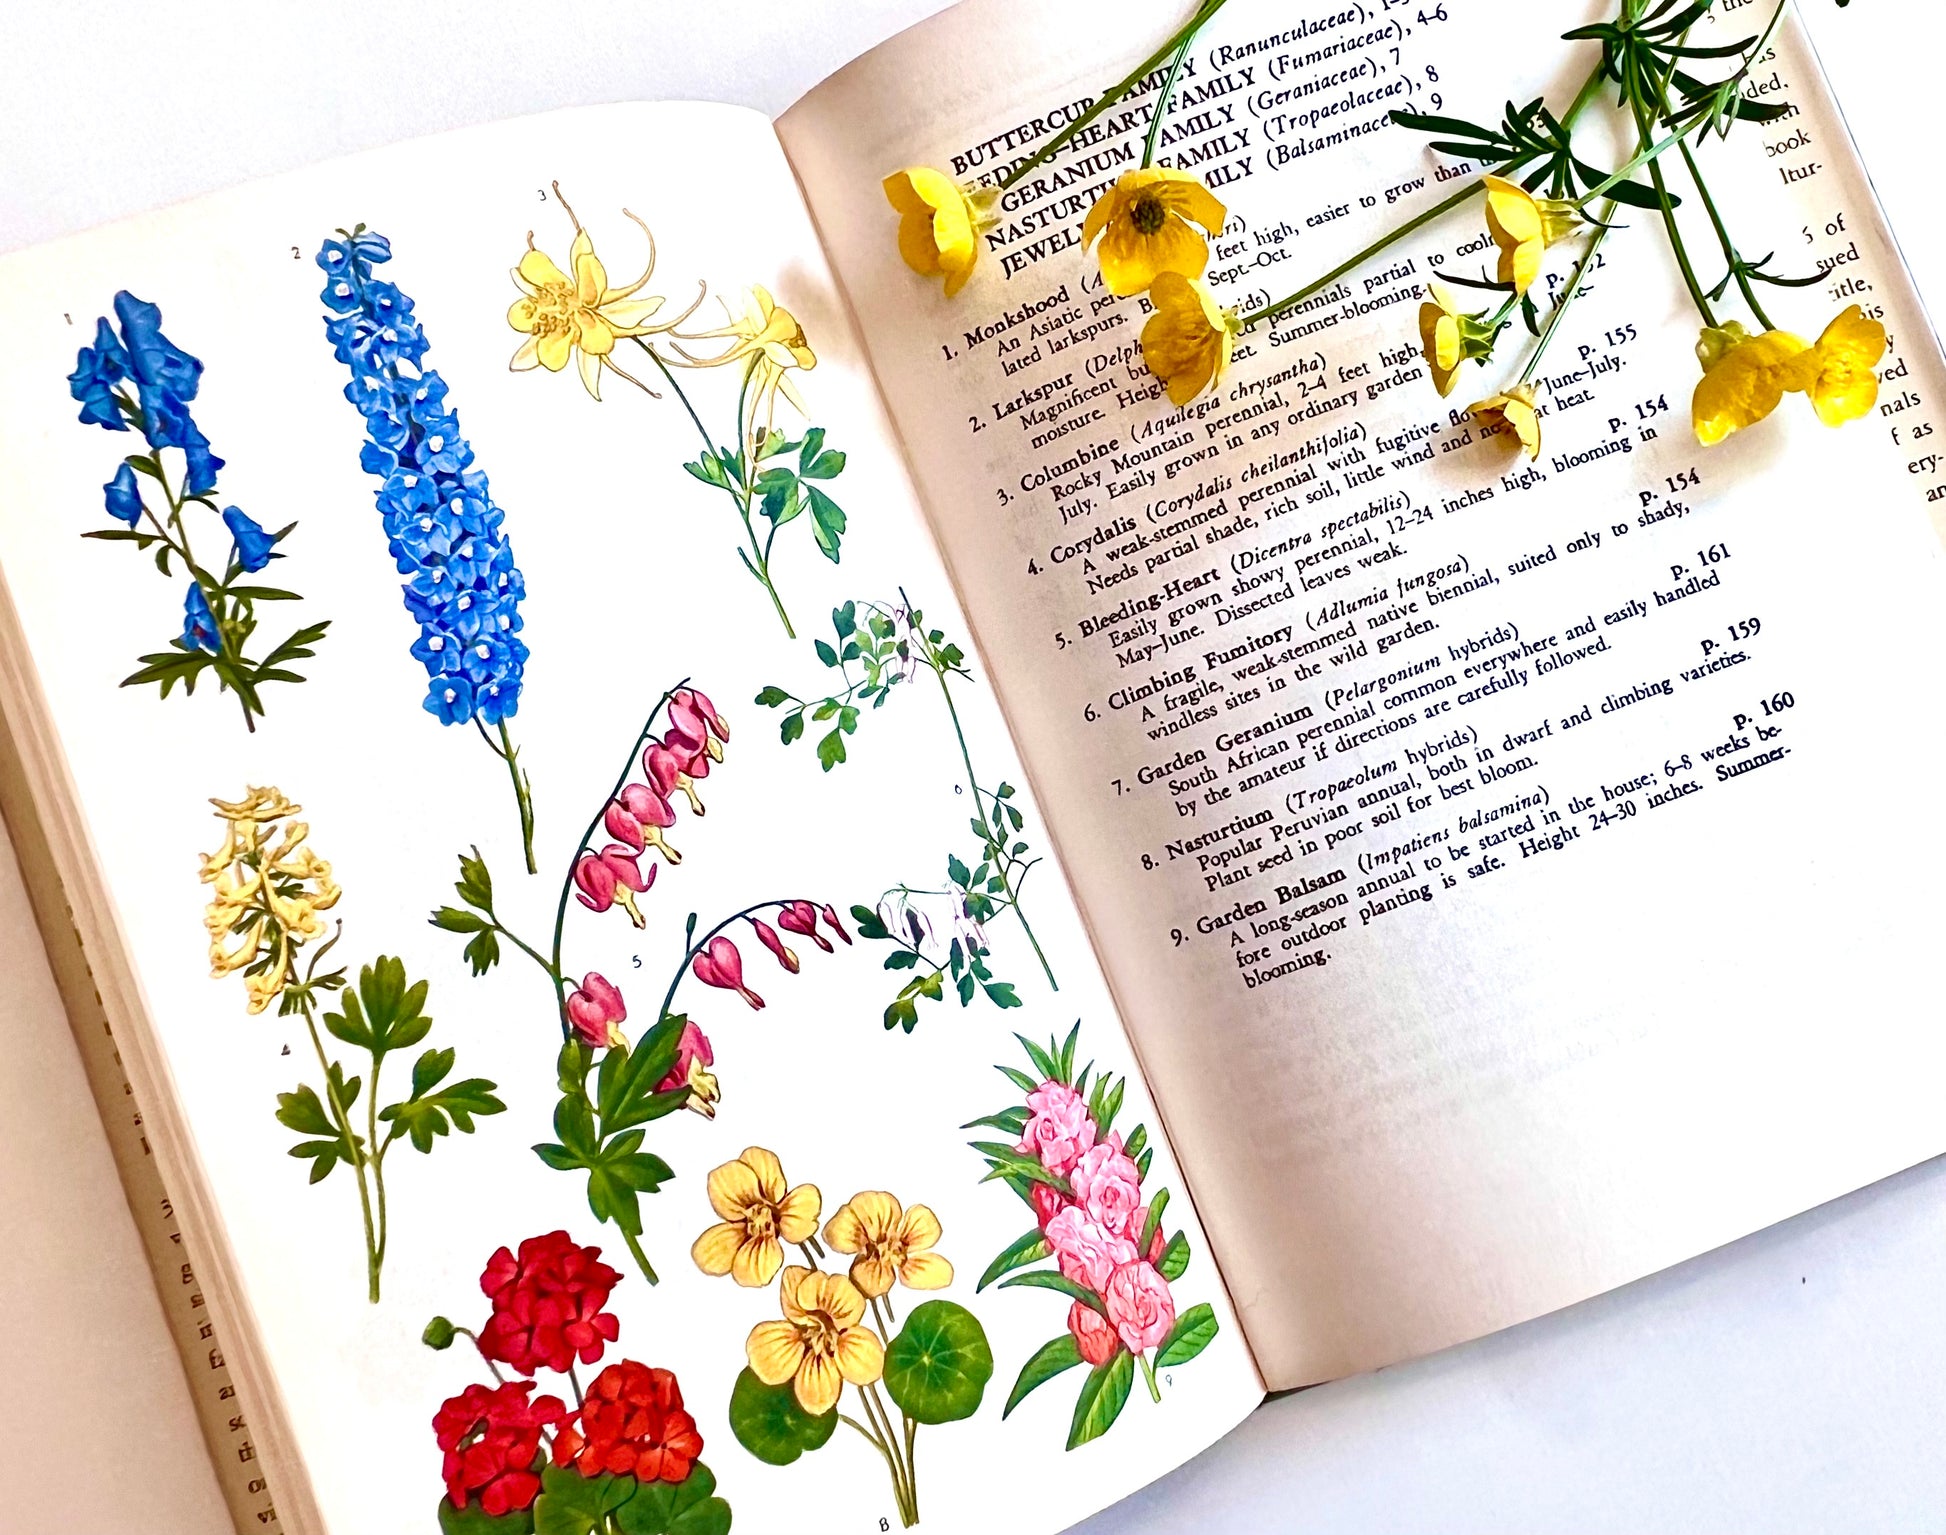 1
2
3
4
5
6
8
9
BUTTERCUP FAMILY (Ranunculaceae),
FAMILY (Fumariaceae), 4–6
GERANIUM FAMILY (Geraniaceae), 7
FAMILY (Tropaeolaceae), 8
(Balsaminaceae), 9
1. Monkshood
An Asiatic feet high, easier to grow than
lated larkspurs. Sept.–Oct.
2. Larkspur
Magnificent perennials partial to
moisture. Summer-blooming.
3. Columbine (Aquilegia chrysantha)
Rocky Mountain perennial, 2–4 feet high,
July. Easily grown in any ordinary garden
p. 155
4. Corydalis (Corydalis cheilanthifolia)
A weak-stemmed perennial with fugitive June–July.
Needs partial shade, rich soil, little wind and heat.
p. 154
5. Bleeding-Heart (Dicentra spectabilis)
Easily grown showy perennial, 12–24 inches high, blooming in
May–June. Dissected leaves weak.
p. 154
6. Climbing Fumitory (Adlumia fungosa)
A fragile, weak-stemmed native biennial, suited only to shady,
windless sites in the wild garden.
p. 161
7. Garden Geranium (Pelargonium hybrids)
South African perennial common everywhere and easily handled
by the amateur if directions are carefully followed.
p. 159
8. Nasturtium (Tropaeolum hybrids)
Popular Peruvian annual, both in dwarf and climbing varieties.
Plant seed in poor soil for best bloom.
p. 160
9. Garden Balsam (Impatiens balsamina)
A long-season annual to be started in the house; 6–8 weeks be-
fore outdoor planting is safe. Height 24–30 inches. Summer-
blooming.
book
ltur-
of
sued
title,
nals
f as
ery-